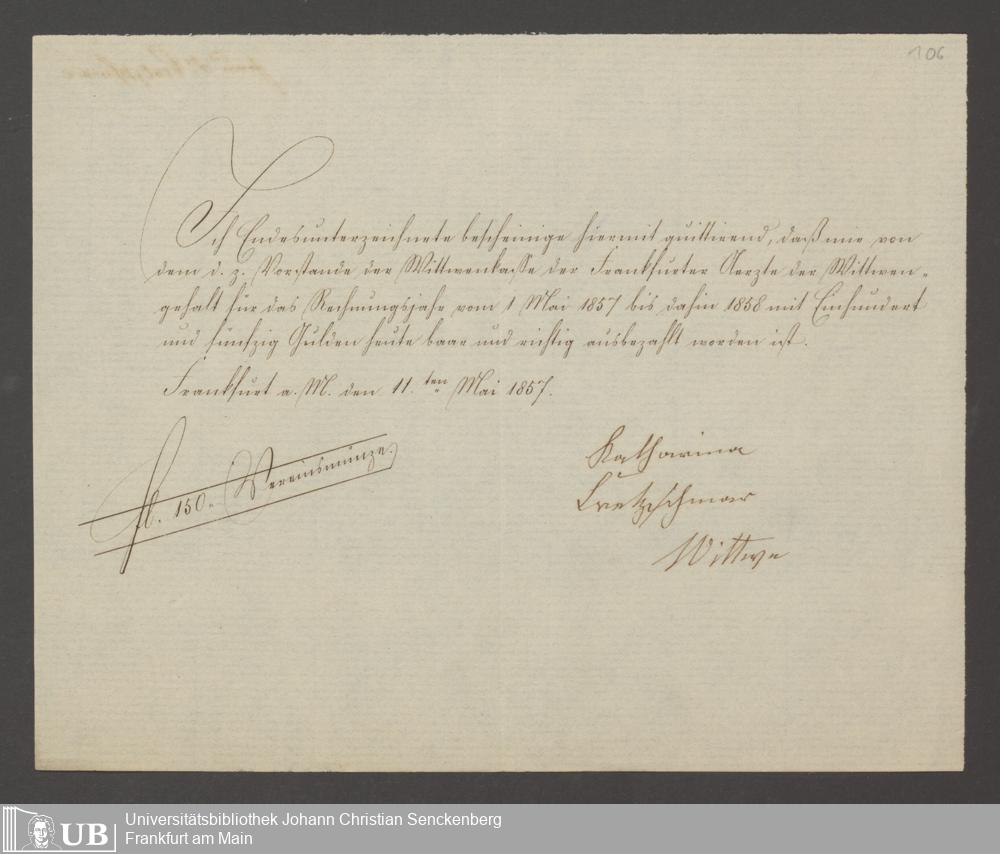 106
Ich Endesunterzeichnete bescheinige hiermit quittirend, daß mir von
dem d. z. Vorstande der Wittwenkasse der Frankfurter Aerzte der Wittwen-
gehalt für das Rechnungsjahr vom 1 Mai 1857 bis dahin 1858 mit Einhundert
und fünfzig Gulden heute baar und richtig ausbezahlt worden ist.
Frankfurt a. M. den 11.ten Mai 1857.
fl. 150. Vereinsmünze.
Katharina
Kretzschmar
Wittwe
UB
Universitätsbibliothek Johann Christian Senckenberg
Frankfurt am Main